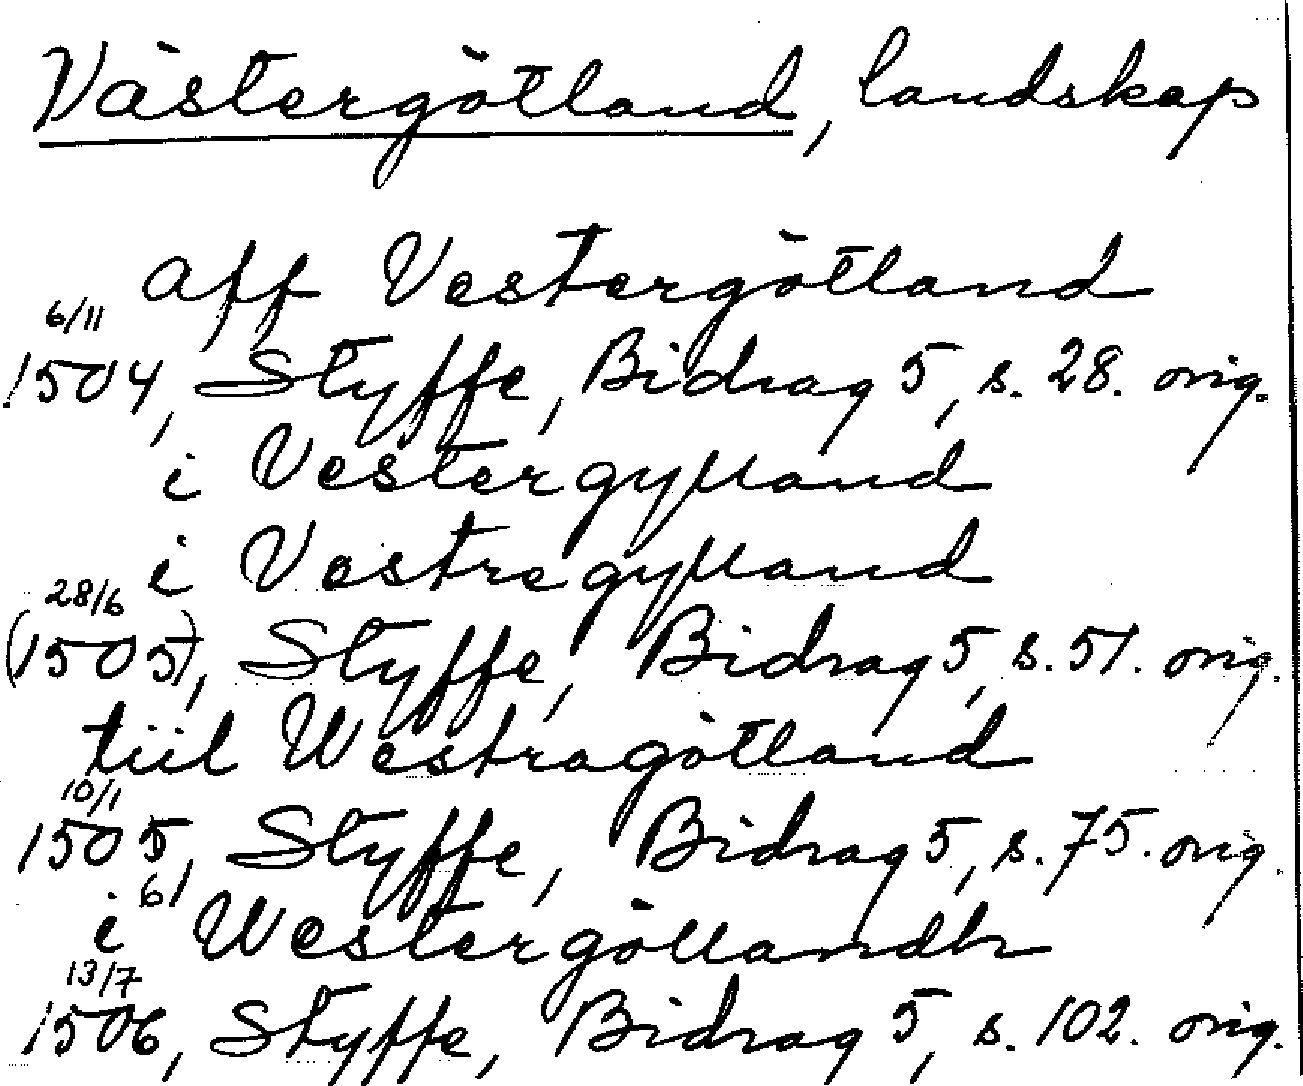 Västergötland, landskap
aff Vestergötland
6/11
1504, Styffe, Bidrag 5, s. 28. orig.
i Vestergylland
i Vestregylland
28/6
(1505), Styffe, Bidrag 5, s. 51. orig.
tiil Westragötland
10/1
1505, Styffe, Bidrag 5, s. 75. orig.
61
i Westergöllandh
13/7
1506, Styffe, Bidrag 5, s. 102. orig.